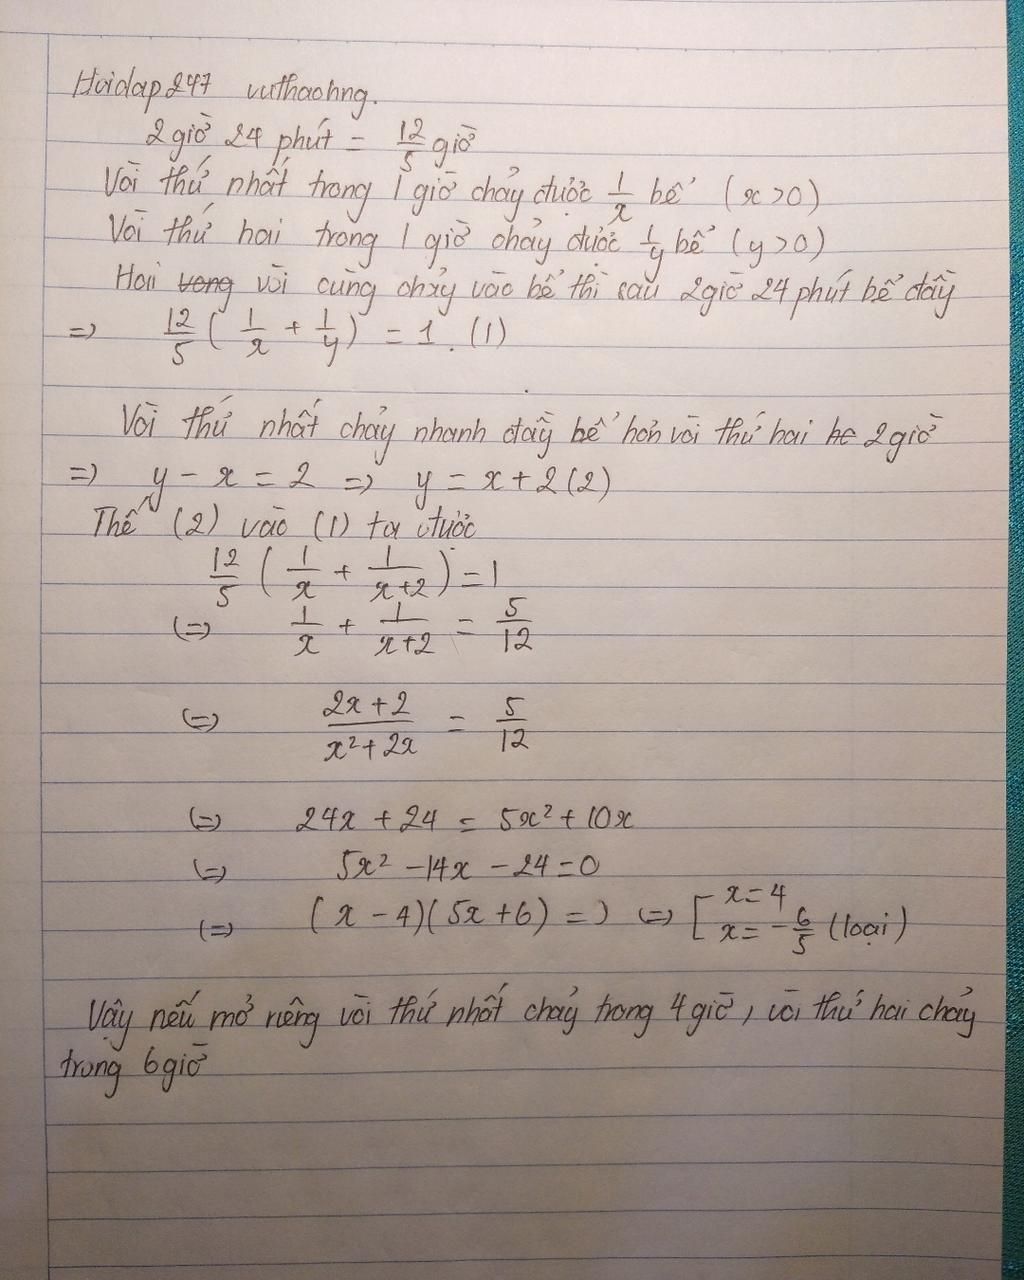 Hoidap247 vuthaohng.
2 giờ 24 phút = 12/5 giờ
Vòi thứ nhất trong 1 giờ chảy được 1/x bể (x>0)
Vòi thứ hai trong 1 giờ chảy được 1/y bể (y>0)
Hai vong vòi cùng chảy vào bể thì sau 2giờ 24 phút bể đầy
=> 12/5 ( 1/x + 1/y ) = 1 . (1)
Vòi thứ nhất chảy nhanh đầy bể hơn vòi thứ hai he 2giờ
=> y - x = 2 => y = x + 2 (2)
Thế (2) vào (1) ta được
12/5 ( 1/x + 1/(x+2) ) = 1
(=) 1/x + 1/(x+2) = 5/12
(=) (2x+2)/(x²+2x) = 5/12
(=) 24x + 24 = 5x² + 10x
(=) 5x² - 14x - 24 = 0
(=) (x - 4)(5x + 6) = ) (=) [ x = 4
x = -6/5 (loại)
Vậy nếu mở riêng vòi thứ nhất chảy trong 4 giờ, vòi thứ hai chảy
trong 6 giờ